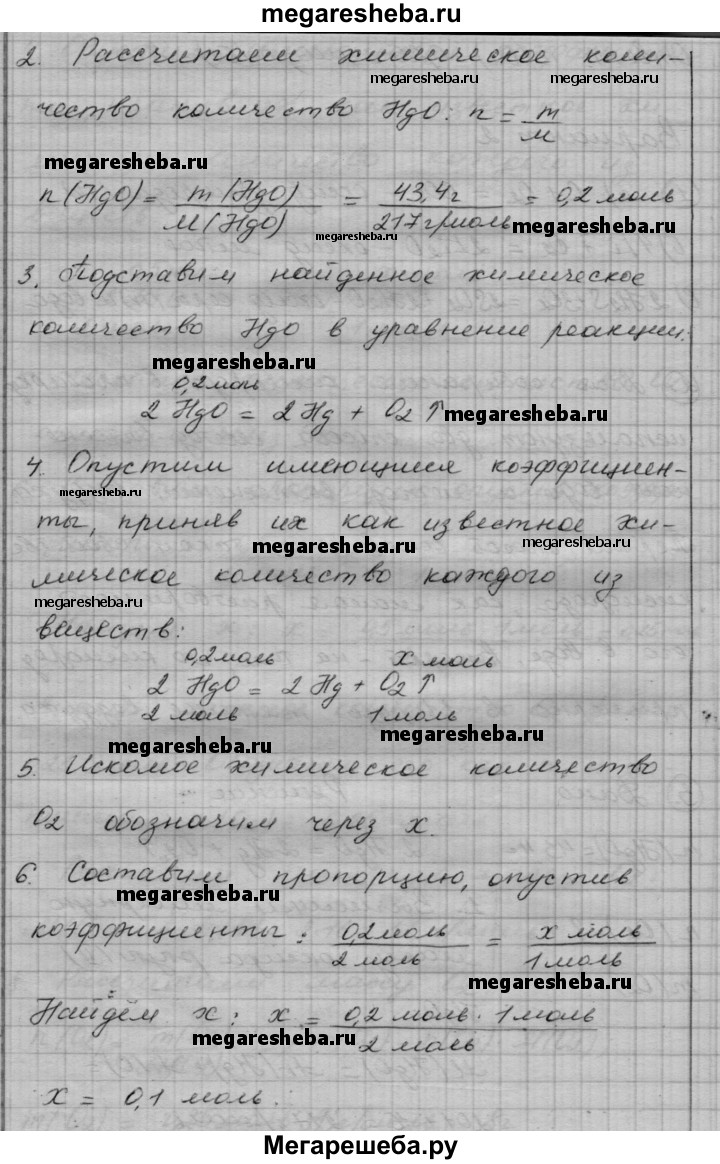 megaresheba.ru
2. Рассчитаем химическое коли-
megaresheba.ru megaresheba.ru
чество количество HgO: n = m/M
megaresheba.ru
n(HgO) = m(HgO)/M(HgO) = 43,4г/217г/моль = 0,2 моль
megaresheba.ru megaresheba.ru
3. Подставим найденное химическое
количество HgO в уравнение реакции:
megaresheba.ru
0,2 моль
2 HgO = 2 Hg + O2 ↑ megaresheba.ru
4. Опустим имеющиеся коэффициен-
megaresheba.ru
ты, приняв их как известное хи-
megaresheba.ru
мическое количество каждого из
megaresheba.ru
веществ:
0,2 моль x моль
2 HgO = 2 Hg + O2 ↑
2 моль 1 моль
megaresheba.ru megaresheba.ru
5. Искомое химическое количество
O2 обозначим через x.
6. Составим пропорцию, опустив
megaresheba.ru
коэффициенты: 0,2 моль/2 моль = x моль/1 моль
megaresheba.ru
Найдём x: x = 0,2 моль · 1 моль/2 моль
megaresheba.ru
x = 0,1 моль.
Мегарешеба.ру